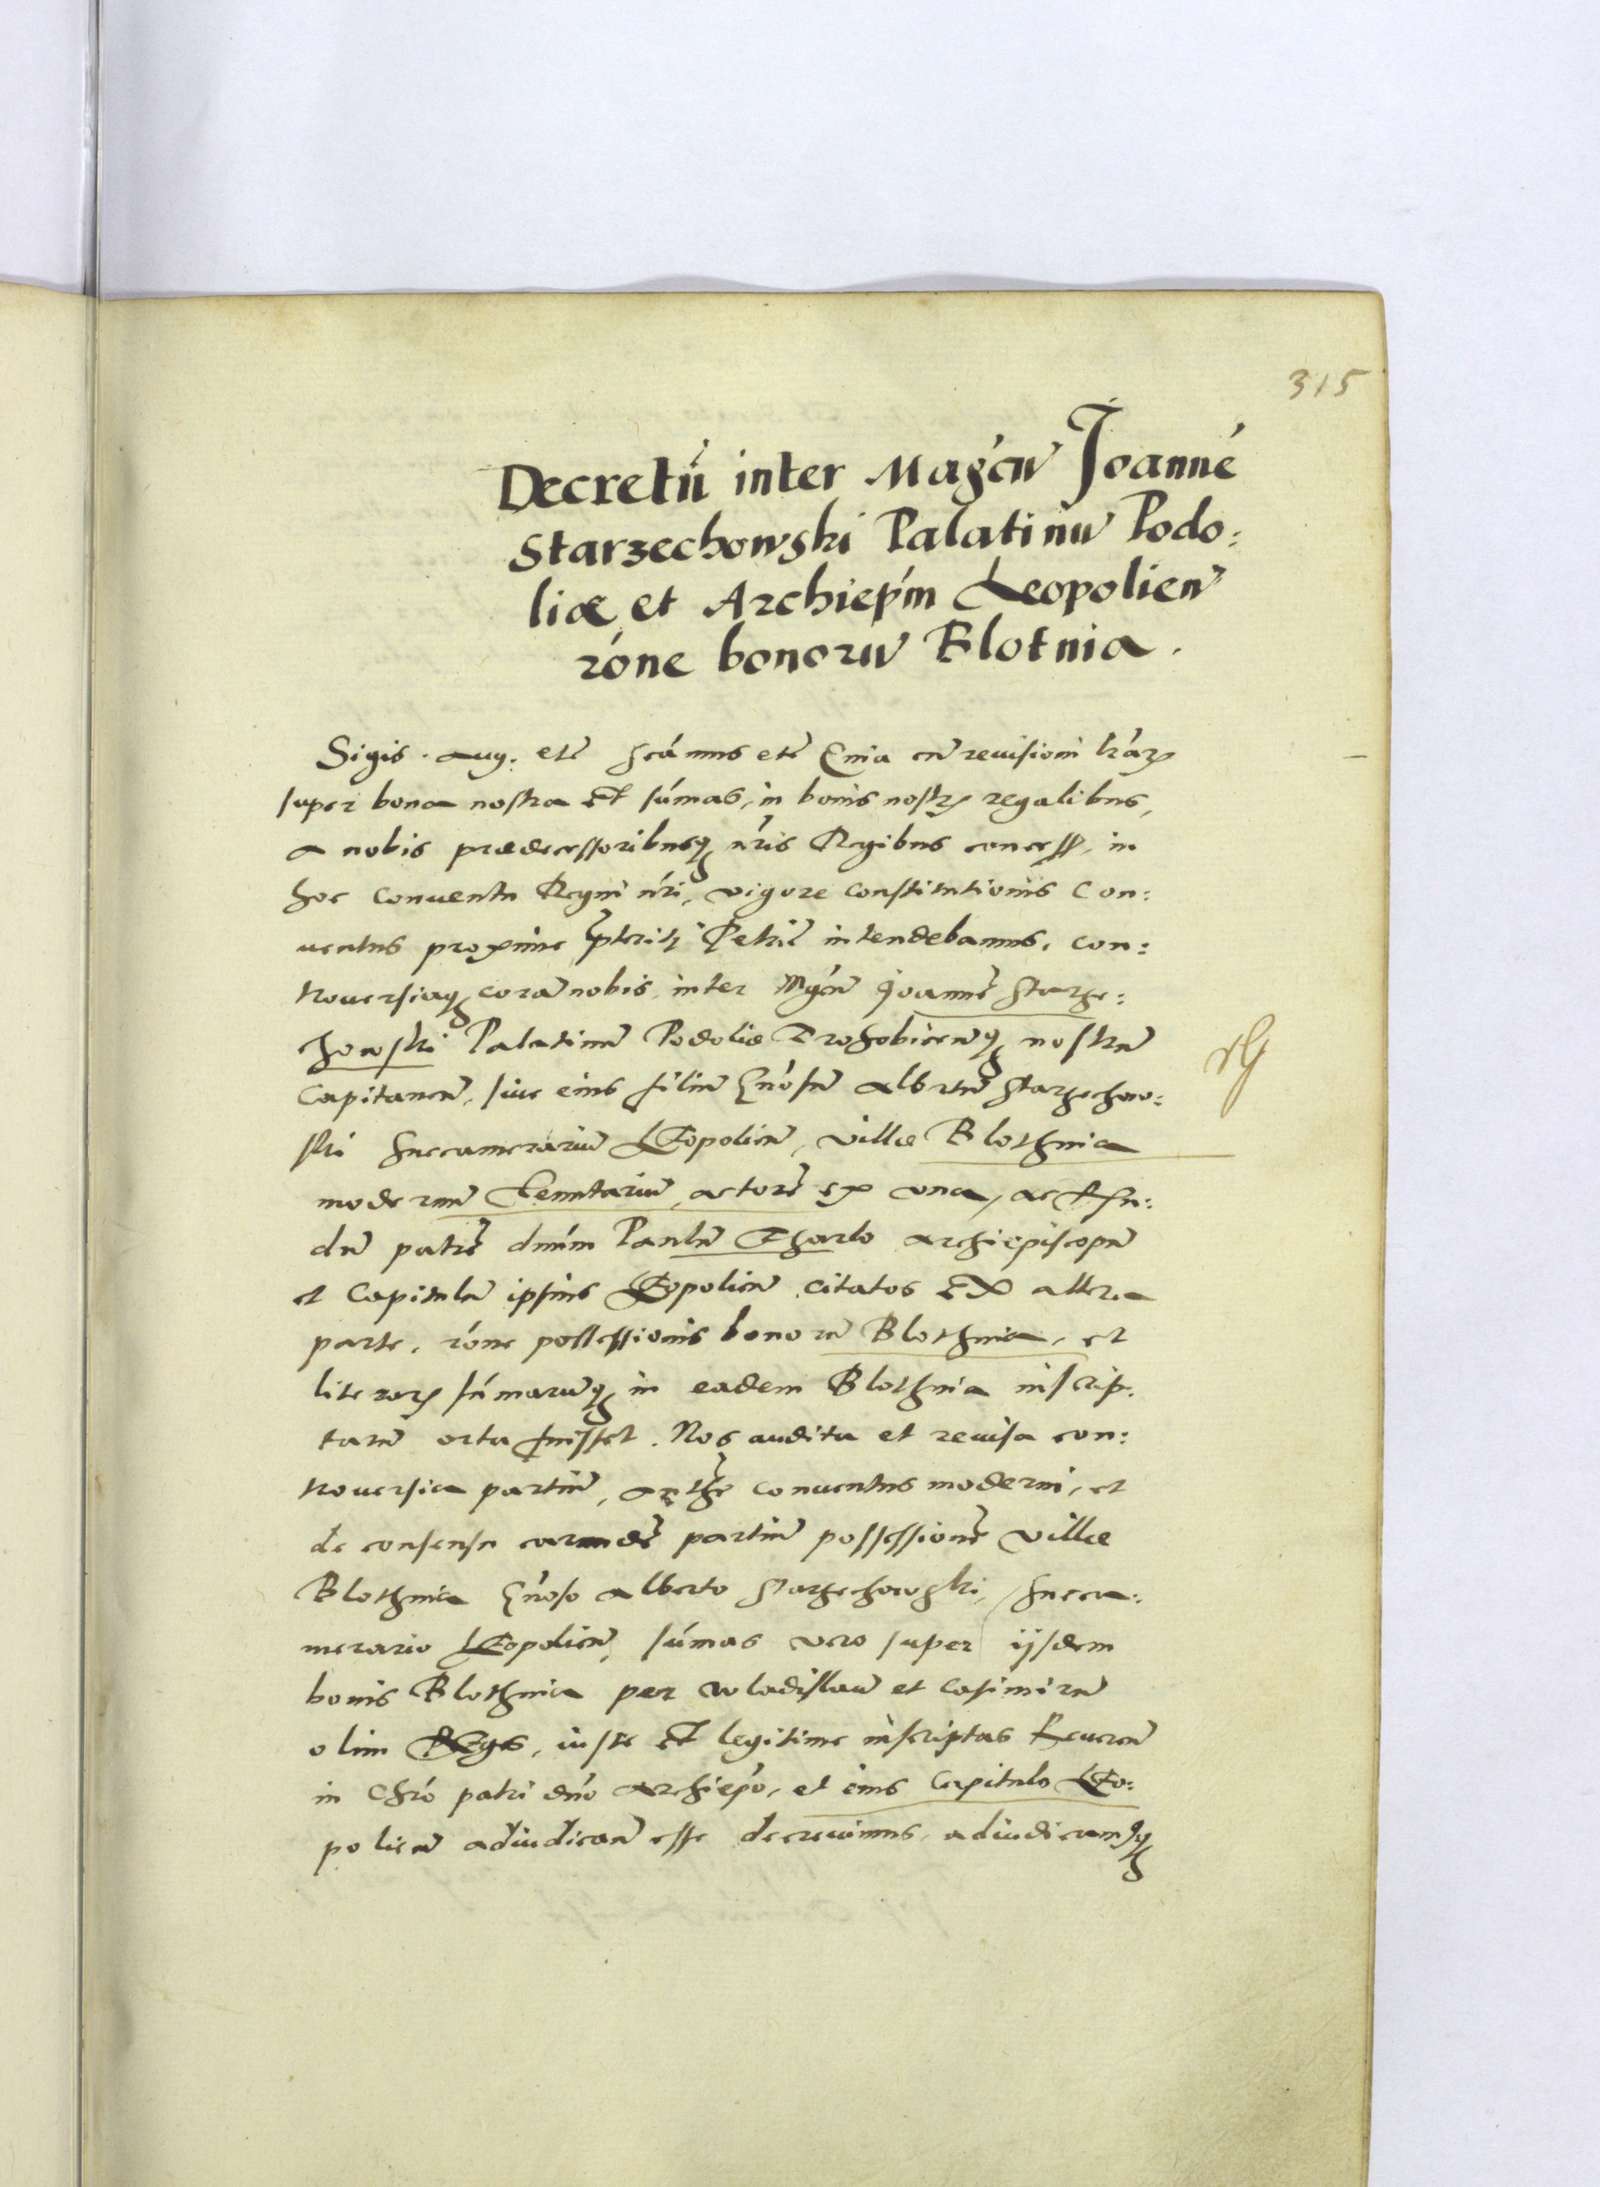 315
Decretū inter Magcū Joannē
Starzechowski Palatinū Podo:
liæ et Archiep̃m Leopolien̄
rõne bonorū Blotnia.
Sigis. Aug. etc̄ Scām̄us etc̄ Qm̄a cū reuisioni lr̄arꝝ
super bona nostra et sūmas, in bonis nostrꝝ regalibus,
a nobis prædecessoribusqꝫ nr̄is Regibus concess̄, in
hoc conuentu Regni nr̄i, vigore constitutionis Con:
uentus proxime p̄teriti Petric̄ intendebamus, con:
trouersiaqꝫ corā nobis, inter Mgcū Joannē Starze:
chowski Palatinū Podoliæ Drohobicen̄qꝫ nostrū
Capitaneū, siue eius filiū Gn̄osū Albertū Starzechow:
ski Succamerariū Leopolien̄, villæ Blothnia
modernū Tenutariū, actorē ex una, ac Rn̄:
dū patrē dn̄m Paulū Tharlo Archiepiscopū
et Capitulū ipsius Leopolien̄ citatos ex altera
parte, rõne possessionis bonorū Blothnia, et
literarꝝ sūmarūqꝫ in eadem Blothnia inscrip:
tarū orta fuisset. Nos audita et reuisa con:
trouersia partiū, aucthē conuentus moderni, et
de consensu earundē partiū possessionē villæ
Blothnia Gn̄oso Alberto Starzechowski, Succa:
merario Leopolien̄, sūmas vero super ijsdem
bonis Blothnia per Wladislaū et Casimirū
olim Reges, iuste et legitime inscriptas Reueren̄
in Chrō patri dn̄o Archiepō, et eius Capitulo Leo:
polien̄ adiudican̄ esse decreuimus, adiudicamusqꝫ